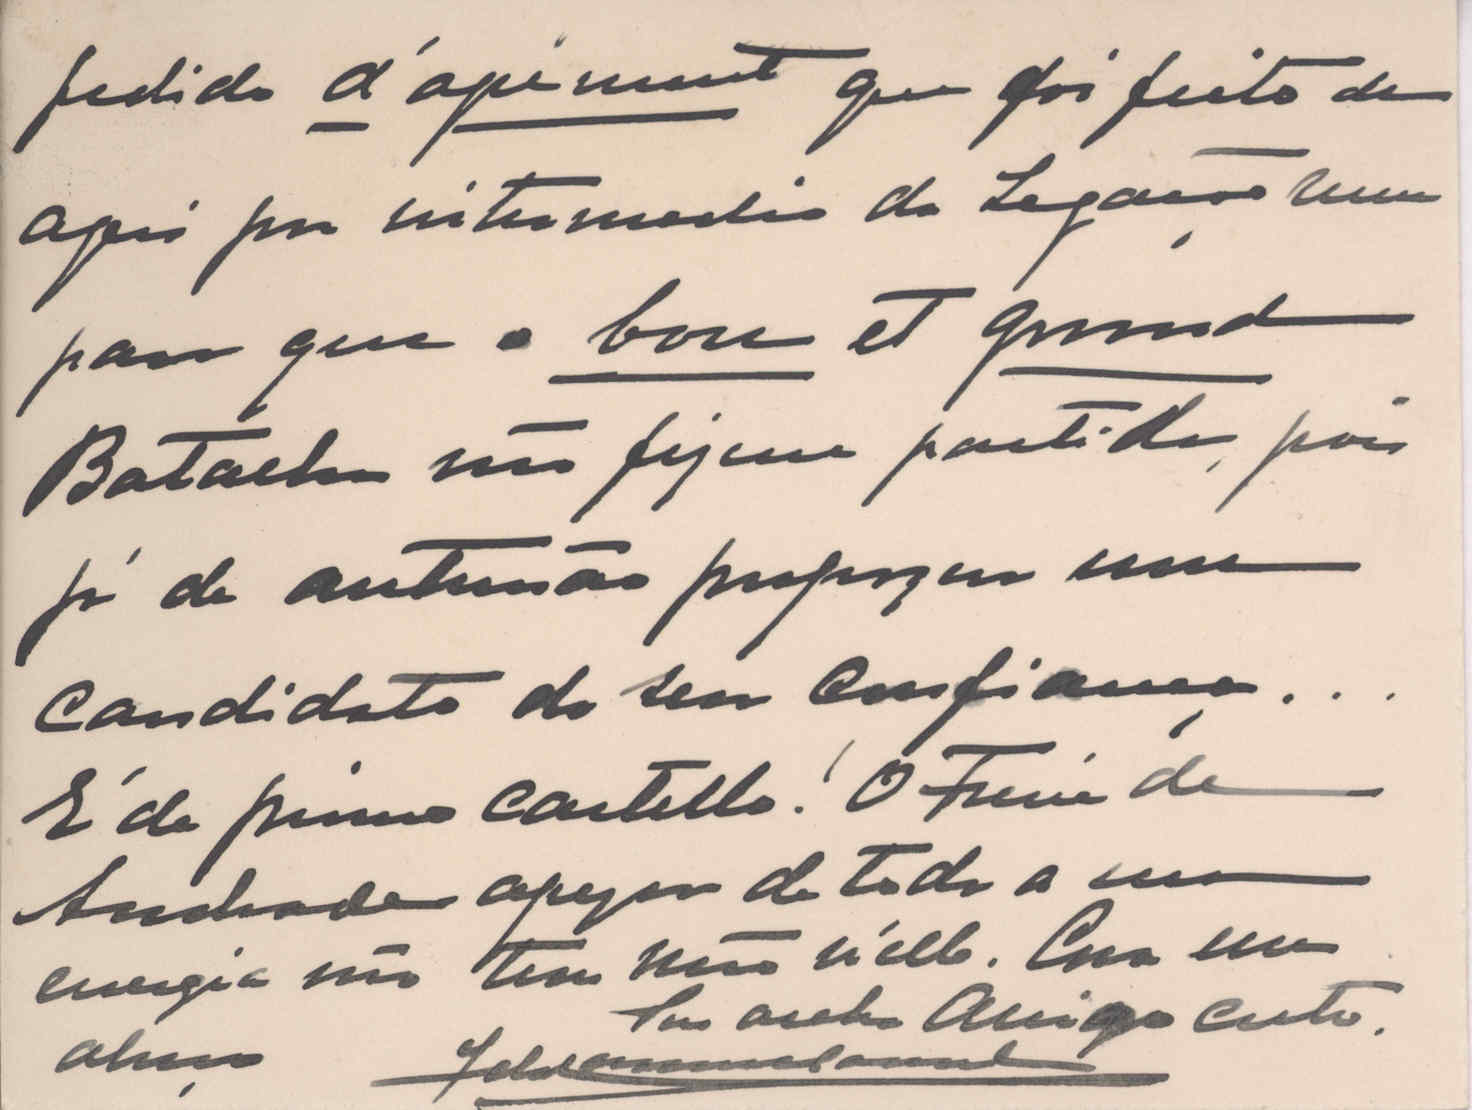 pedido d'agrément que foi feito de
aqui por intermedio da Legação
para que o bon et grand
Batalha não fizesse partida, pois
já de antemão propozera um
candidato da sua confiança...
É de primo cartello! O Freire de
Andrade apezar de toda a sua
energia não tem mão n'ello. Com um
abraço Seu velho Amigo certo.